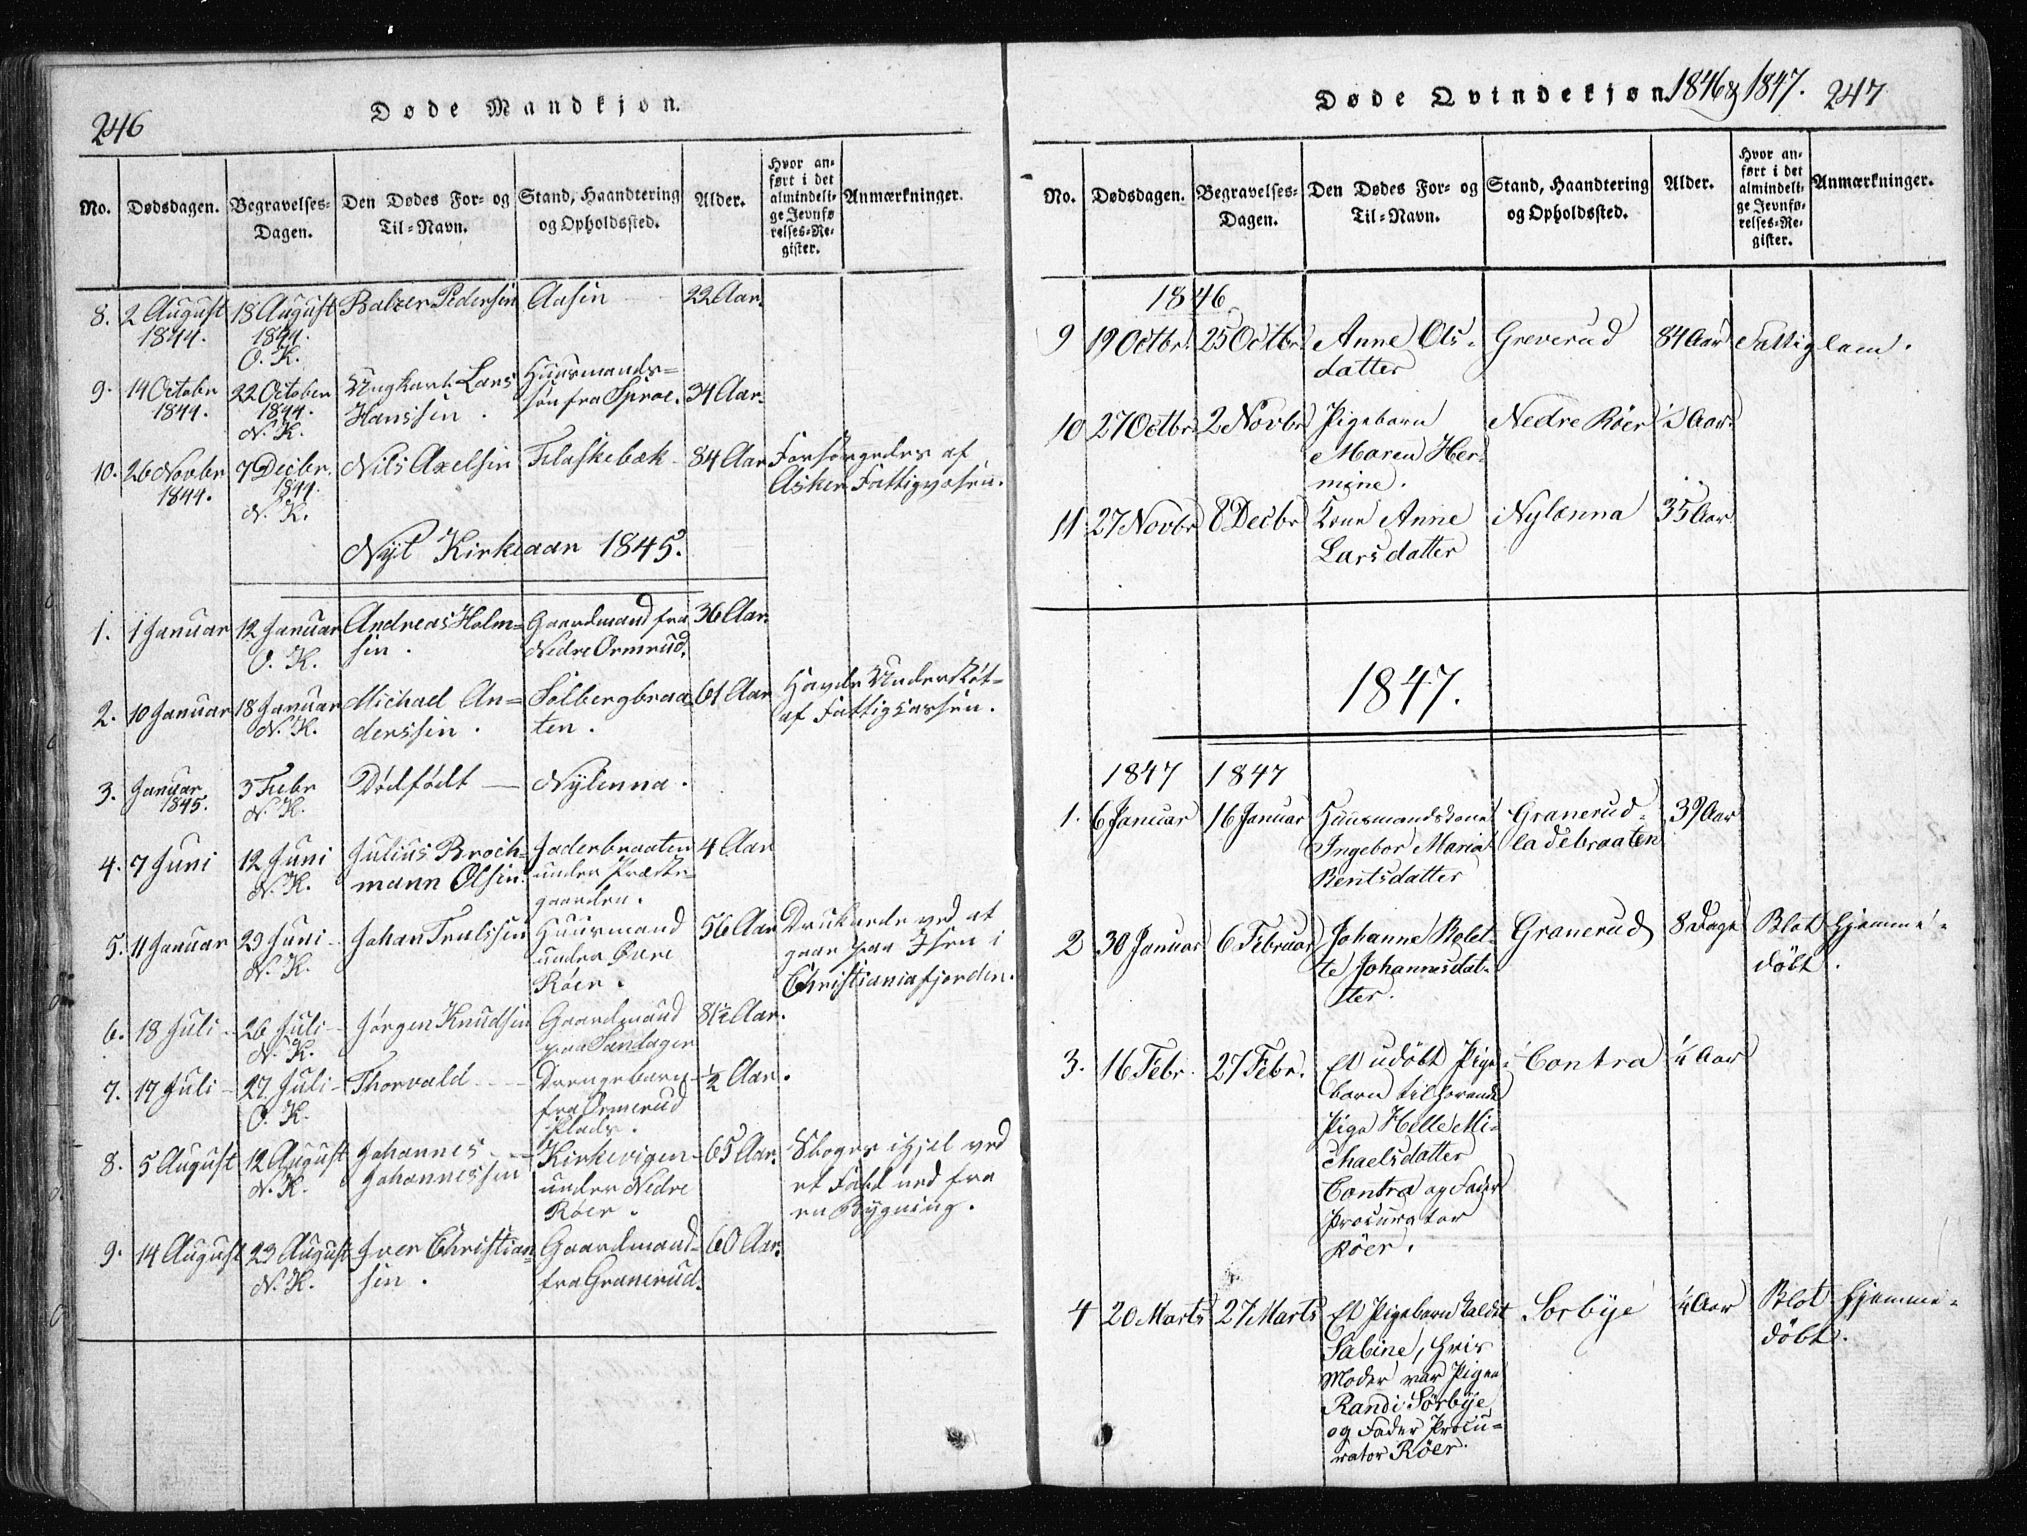 246
Døde Mandkjøn.
No. Dødsdagen. Begravelses-Dagen. Den Dødes For- og Til-Navn. Stand, Haandtering og Opholdssted. Alder. Hvor anført i det almindelige Jevnførelses-Register. Anmærkninger.
8. 2 August 18 August Balzer Pedersen Aasen 22 Aar.
1844. 1844.
O. K.
9. 14 Octobr 22 October Ungkarl Lars Huusmands= 34 Aar.
1844. 1844. Hanssen. søn fra Sproe.
N. K.
10. 26 Novbr 7 Decbr. Nils Axelsen Flaskebæk 84 Aar Forsørgedes af
1844. 1844. Asker Fattigvæsen.
N. K.
Nyt Kirkeaar 1845.
1. 1 Januar 12 Januar Andreas Holm= Gaardmand fra 36 Aar.
O. K. sen. Nedre Ormrud.
2. 10 Januar 18 Januar Michael An= Solbergbraa= 61 Aar Havde Understøt-
N. K. derssen. ten. af Fattigcassen.
3. Januar 3 Febr Dødfødt Nylenna.
1845. N. K.
4. 7 Juni 12 Juni Julius Broch= Jaderbraaten 4 Aar
N. K. mann Olsen. under Præste-
gaarden.
5. 11 Januar 29 Juni Johan Trulssen Huusmand 56 Aar Druknede ved at
N. K. under Øvre gaae paa Isen i
Røer. Christianiafjorden.
6. 18 Juli 26 Juli Jørgen Knudsen Gaardmand 81½ Aar.
N. K. paa Sandager
7. 17 Juli 27 Juli Thorvald Drengebarn ½ Aar.
O. K. fra Ormerud
Plads.
8. 5 August 12 August Johannes Kirkevigen 65 Aar. Sloges ihjel ved
N. K. Johannessen under Nedre et Fald ned fra
Røer. en Bygning.
9. 14 August 23 August Iver Christian= Gaardmand 60 Aar.
N. K. sen. fra Granerud.
Døde Qvindekjøn 1846 & 1847. 247
No. Dødsdagen. Begravelses-Dagen. Den Dødes For- og Til-Navn. Stand, Haandtering og Opholdssted. Alder. Hvor anført i det almindelige Jevnførelses-Register. Anmærkninger.
1846
9 19 Octbr. 25 Octbr. Anne Ols= Greverud 84 Aar Fattiglem.
datter
10 27 Octbr. 2 Novbr Pigebarn Nedre Röer Aar
Maren Her=
mine.
11 27 Novbr 8 Decbr Kone Anne Nylænna 35 Aar
Larsdatter
1847.
1847 1847
1. 6 Januar 16 Januar Huusmandskone Granerud= 39 Aar
Ingebor Maria ladebraaten
Bentsdatter
2 30 Januar 6 Februar Johanne Bolet= Granerud 8 Dage Blot hjemme=
te Johannesdat= döbt.
ter.
3. 16 Febr. 27 Febr. Et udöbt Pige= Contra ¼ Aar
barn tilhørende
Pige Helle Mi=
chaelsdatter
Contra og Fader
Procurator
Röer.
4 20 Marts 27 Marts Et Pigebarn kaldet Sorbye ¼ Aar Blot hjemme=
Sabine, hvis döbt.
Moder var Pigen
Randi Sörbye
og Fader Procu=
rator Röer.